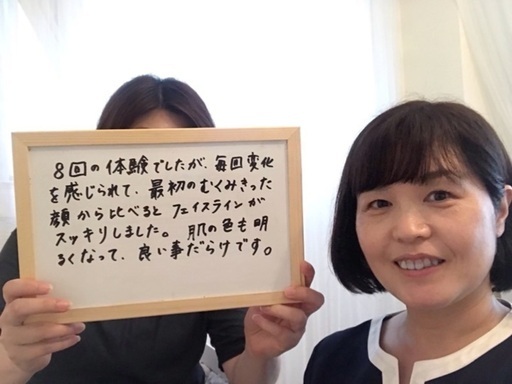 8回の体験でしたが、毎回変化
を感じられて、最初のむくみきった
顔から比べるとフェイスラインが
スッキリしました。肌の色も明
るくなって、良い事だらけです。